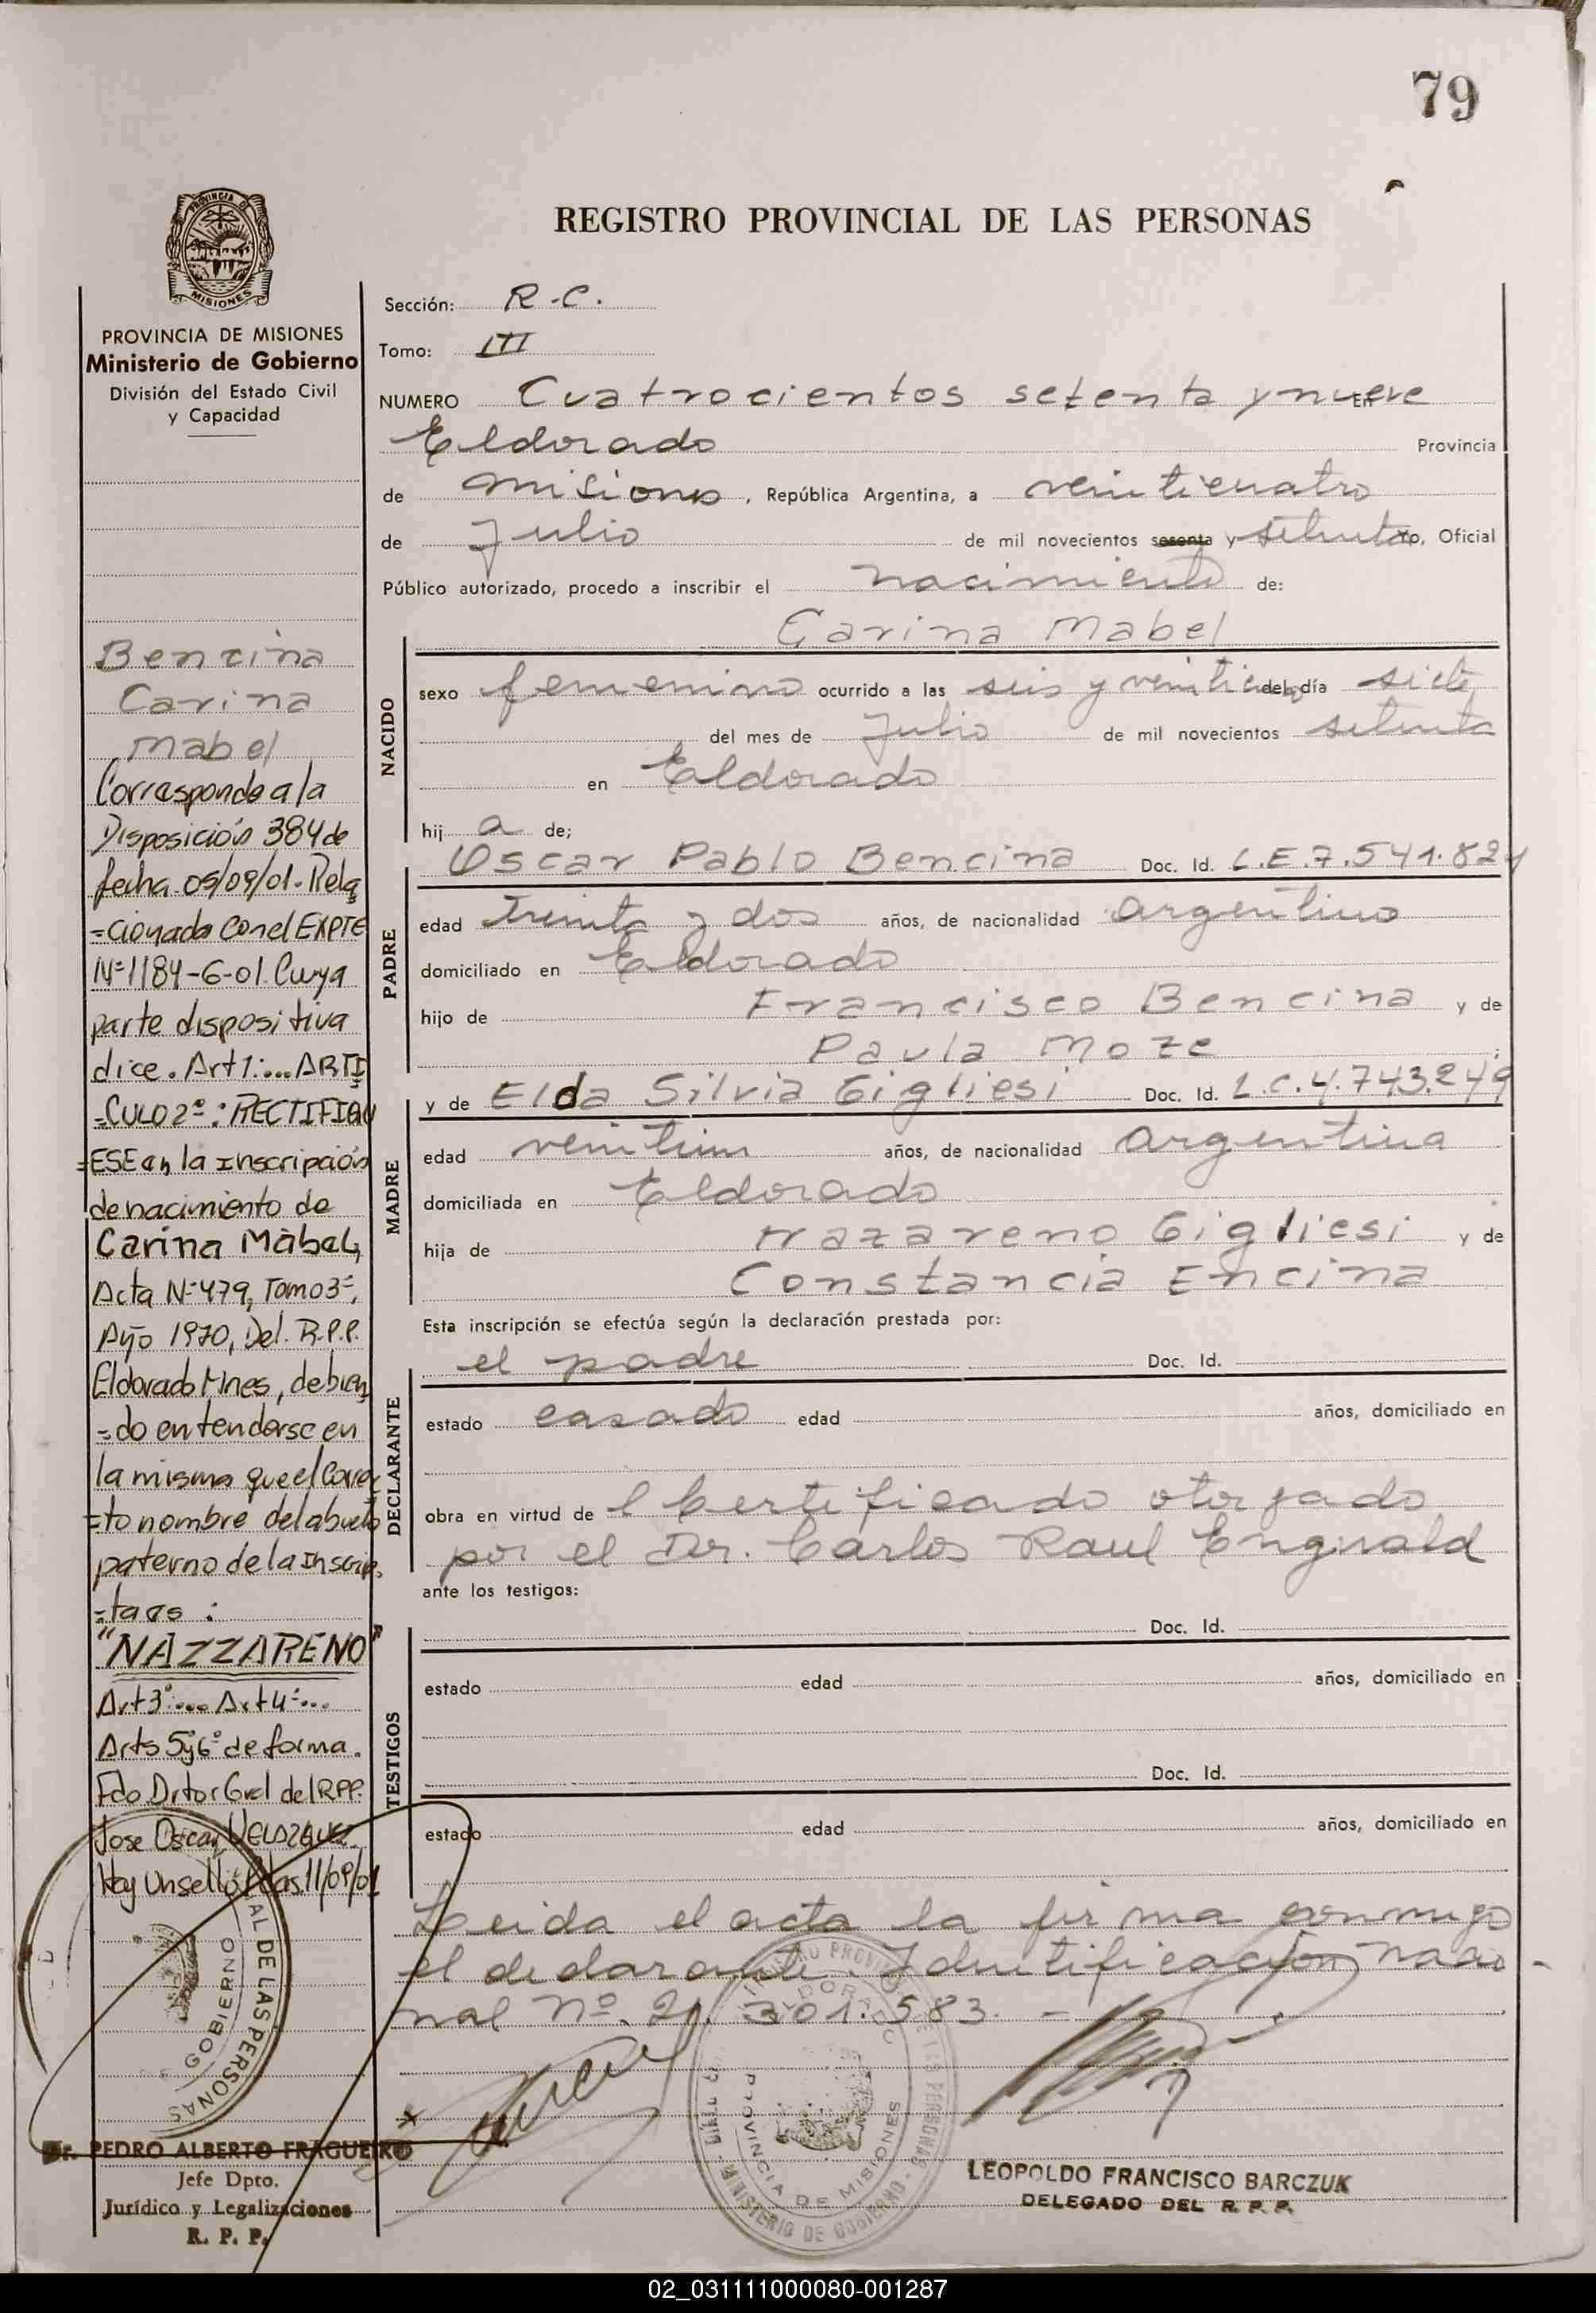 79
REGISTRO PROVINCIAL DE LAS PERSONAS
PROVINCIA DE
MISIONES
PROVINCIA DE MISIONES
Ministerio de Gobierno
División del Estado Civil
y Capacidad
Bencina
Carina
Mabel
Corresponde a la
Disposición 384 de
fecha 05/09/01. Rela
=cionada con el EXPTE
Nº 1184-6-01. Cuya
parte dispositiva
dice. Art 1:... ARTI
=CULO 2º: RECTIFIQU
=ESE en la inscripción
de nacimiento de
Carina Mabel,
Acta Nº 479, Tomo 3º,
Año 1970, Del. R.P.P.
Eldorado Mnes, debien
=do entenderse en
la misma que el corre
=to nombre del abuelo
paterno de la inscrip
=ta es :
"NAZZARENO"
Art 3º:... Art 4º:...
Arts 5 y 6º de forma.
Fdo Drtor Gral del RPP.
Jose Oscar VELAZQUEZ
Hay un sello. Pdas. 11/09/01
AL DE LAS PERSONAS
GOBIERNO
PEDRO ALBERTO FRAGUEIRO
Jefe Dpto.
Jurídico y Legalizaciones
R. P. P.
Sección: R.C.
Tomo: III
NUMERO Cuatrocientos setenta y nueve En
Eldorado Provincia
de Misiones, República Argentina, a veinticuatro
de Julio de mil novecientos sesenta y setenta yo, Oficial
Público autorizado, procedo a inscribir el nacimiento de:
Carina Mabel
NACIDO
sexo femenino ocurrido a las seis y veinticinco del día siete
del mes de Julio de mil novecientos setenta
en Eldorado
hij a de;
PADRE
Oscar Pablo Bencina Doc. Id. L.E.7.541.824
edad treinta y dos años, de nacionalidad argentino
domiciliado en Eldorado
hijo de Francisco Bencina y de
Paula Moze
MADRE
y de Elda Silvia Gigliesi Doc. Id. L.C.4.743.249
edad veintiun años, de nacionalidad argentina
domiciliada en Eldorado
hija de Nazareno Gigliesi y de
Constancia Encina
Esta inscripción se efectúa según la declaración prestada por:
DECLARANTE
el padre Doc. Id.
estado casado edad años, domiciliado en
obra en virtud de l Certificado otorgado
por el Dr. Carlos Raul Engwald
ante los testigos:
TESTIGOS
Doc. Id.
estado edad años, domiciliado en
Doc. Id.
estado edad años, domiciliado en
Leida el acta la firma conmigo
el declarante. Identificación nacio-
nal Nº. 21.301.583.-
ELDORADO
PROVINCIA DE MISIONES
MINISTERIO DE GOBIERNO
LEOPOLDO FRANCISCO BARCZUK
DELEGADO DEL R. P. P.
02_031111000080-001287